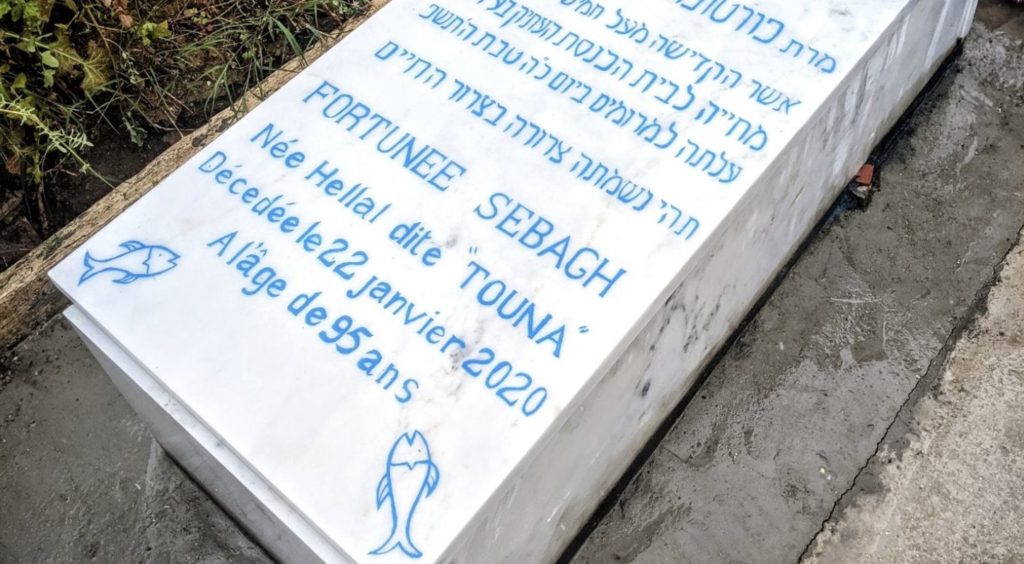 מרת פורטונה
אשר הקדישה מעל חמישים
מחייה לבית הכנסת העתיק בעיר
עלתה למרומים ביום כ״ה טבת ה׳תש״פ
תהי נשמתה צרורה בצרור החיים
FORTUNEE SEBAGH
Née Hellal dite "TOUNA"
Décédée le 22 janvier 2020
A l'âge de 95 ans